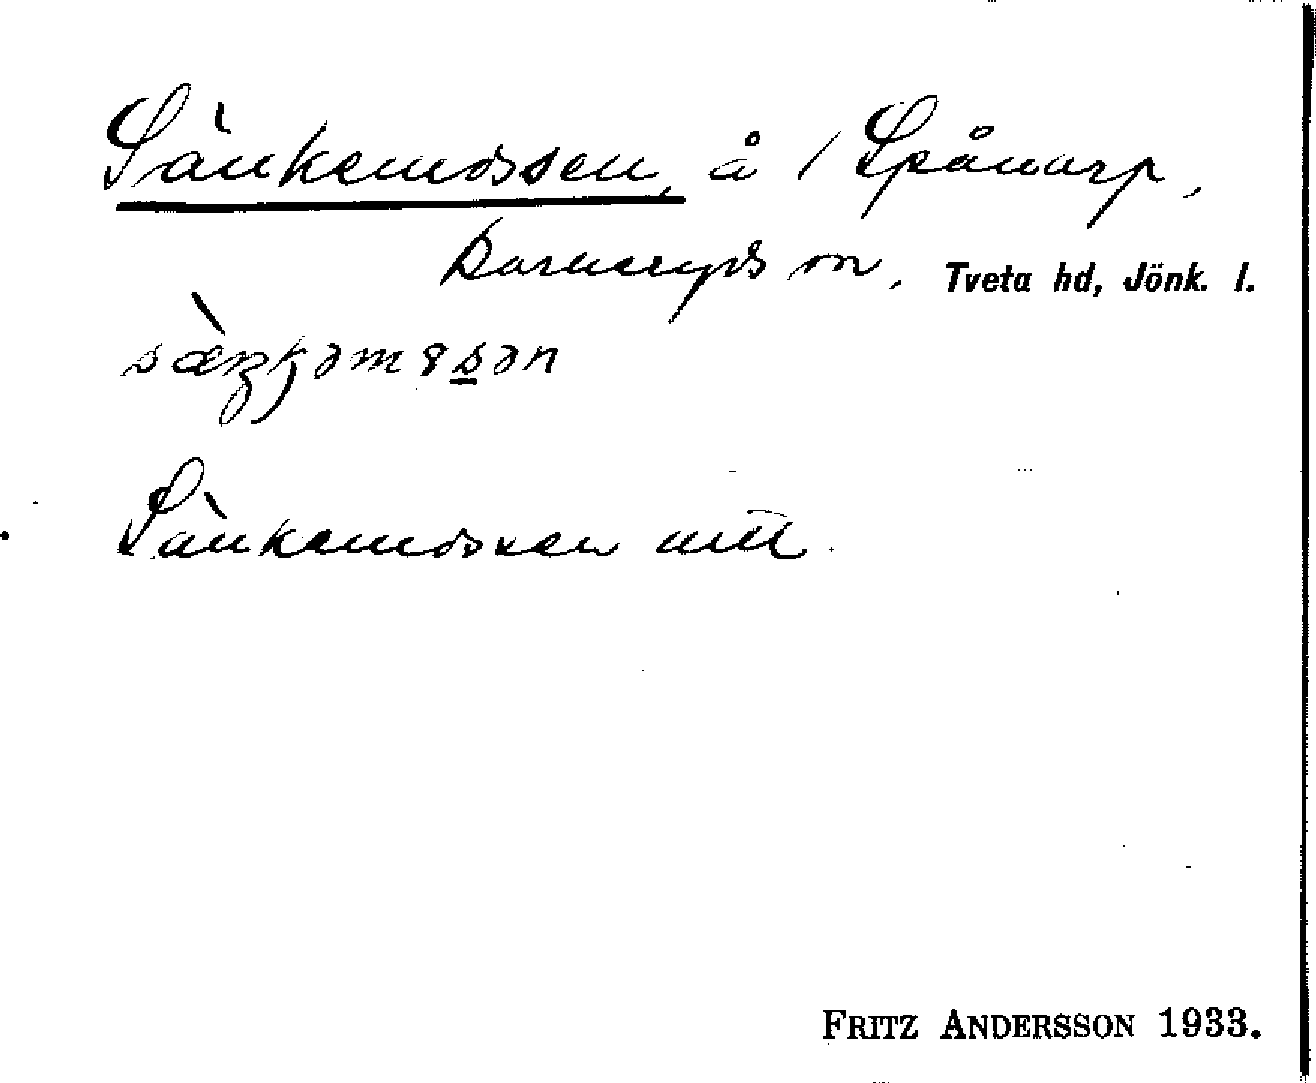 Sänkemossen, å 1 Spånarp,
Barnaryds sn, Tveta hd, Jönk. l.
Sänkemossen
FRITZ ANDERSSON 1933.